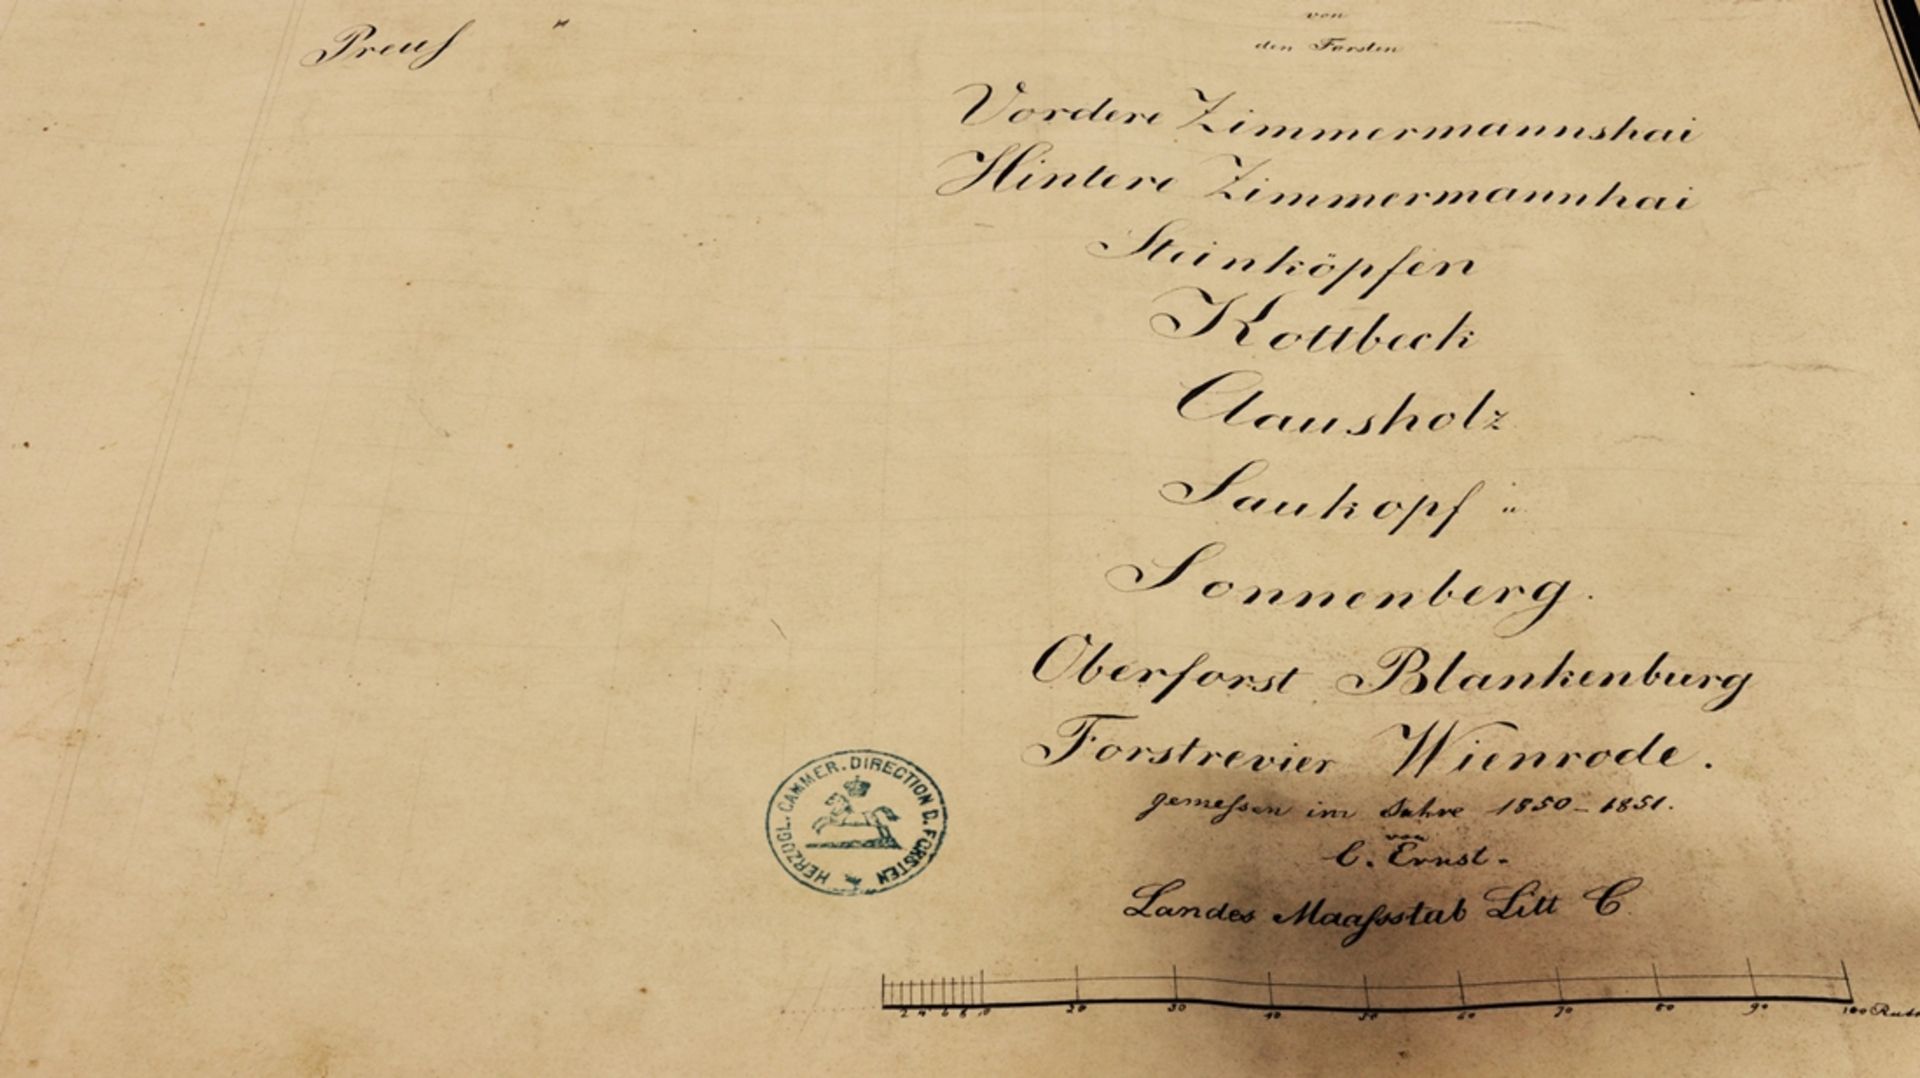 Preuſ "
von
den Forsten
Vordere Zimmermannshai
Hintere Zimmermannhai
Steinköpfen
Kottbeck
Clausholz
Saukopf u
Sonnenberg.
Oberforst Blankenburg
Forstrevier Wienrode.
gemeſsen im Jahre 1850-1851.
von
C. Ernst.
Landes Maaſsstab Litt C
HERZOGL. CAMMER. DIRECTION D. FORSTEN
2 4 6 8 10 20 30 40 50 60 70 80 90 100